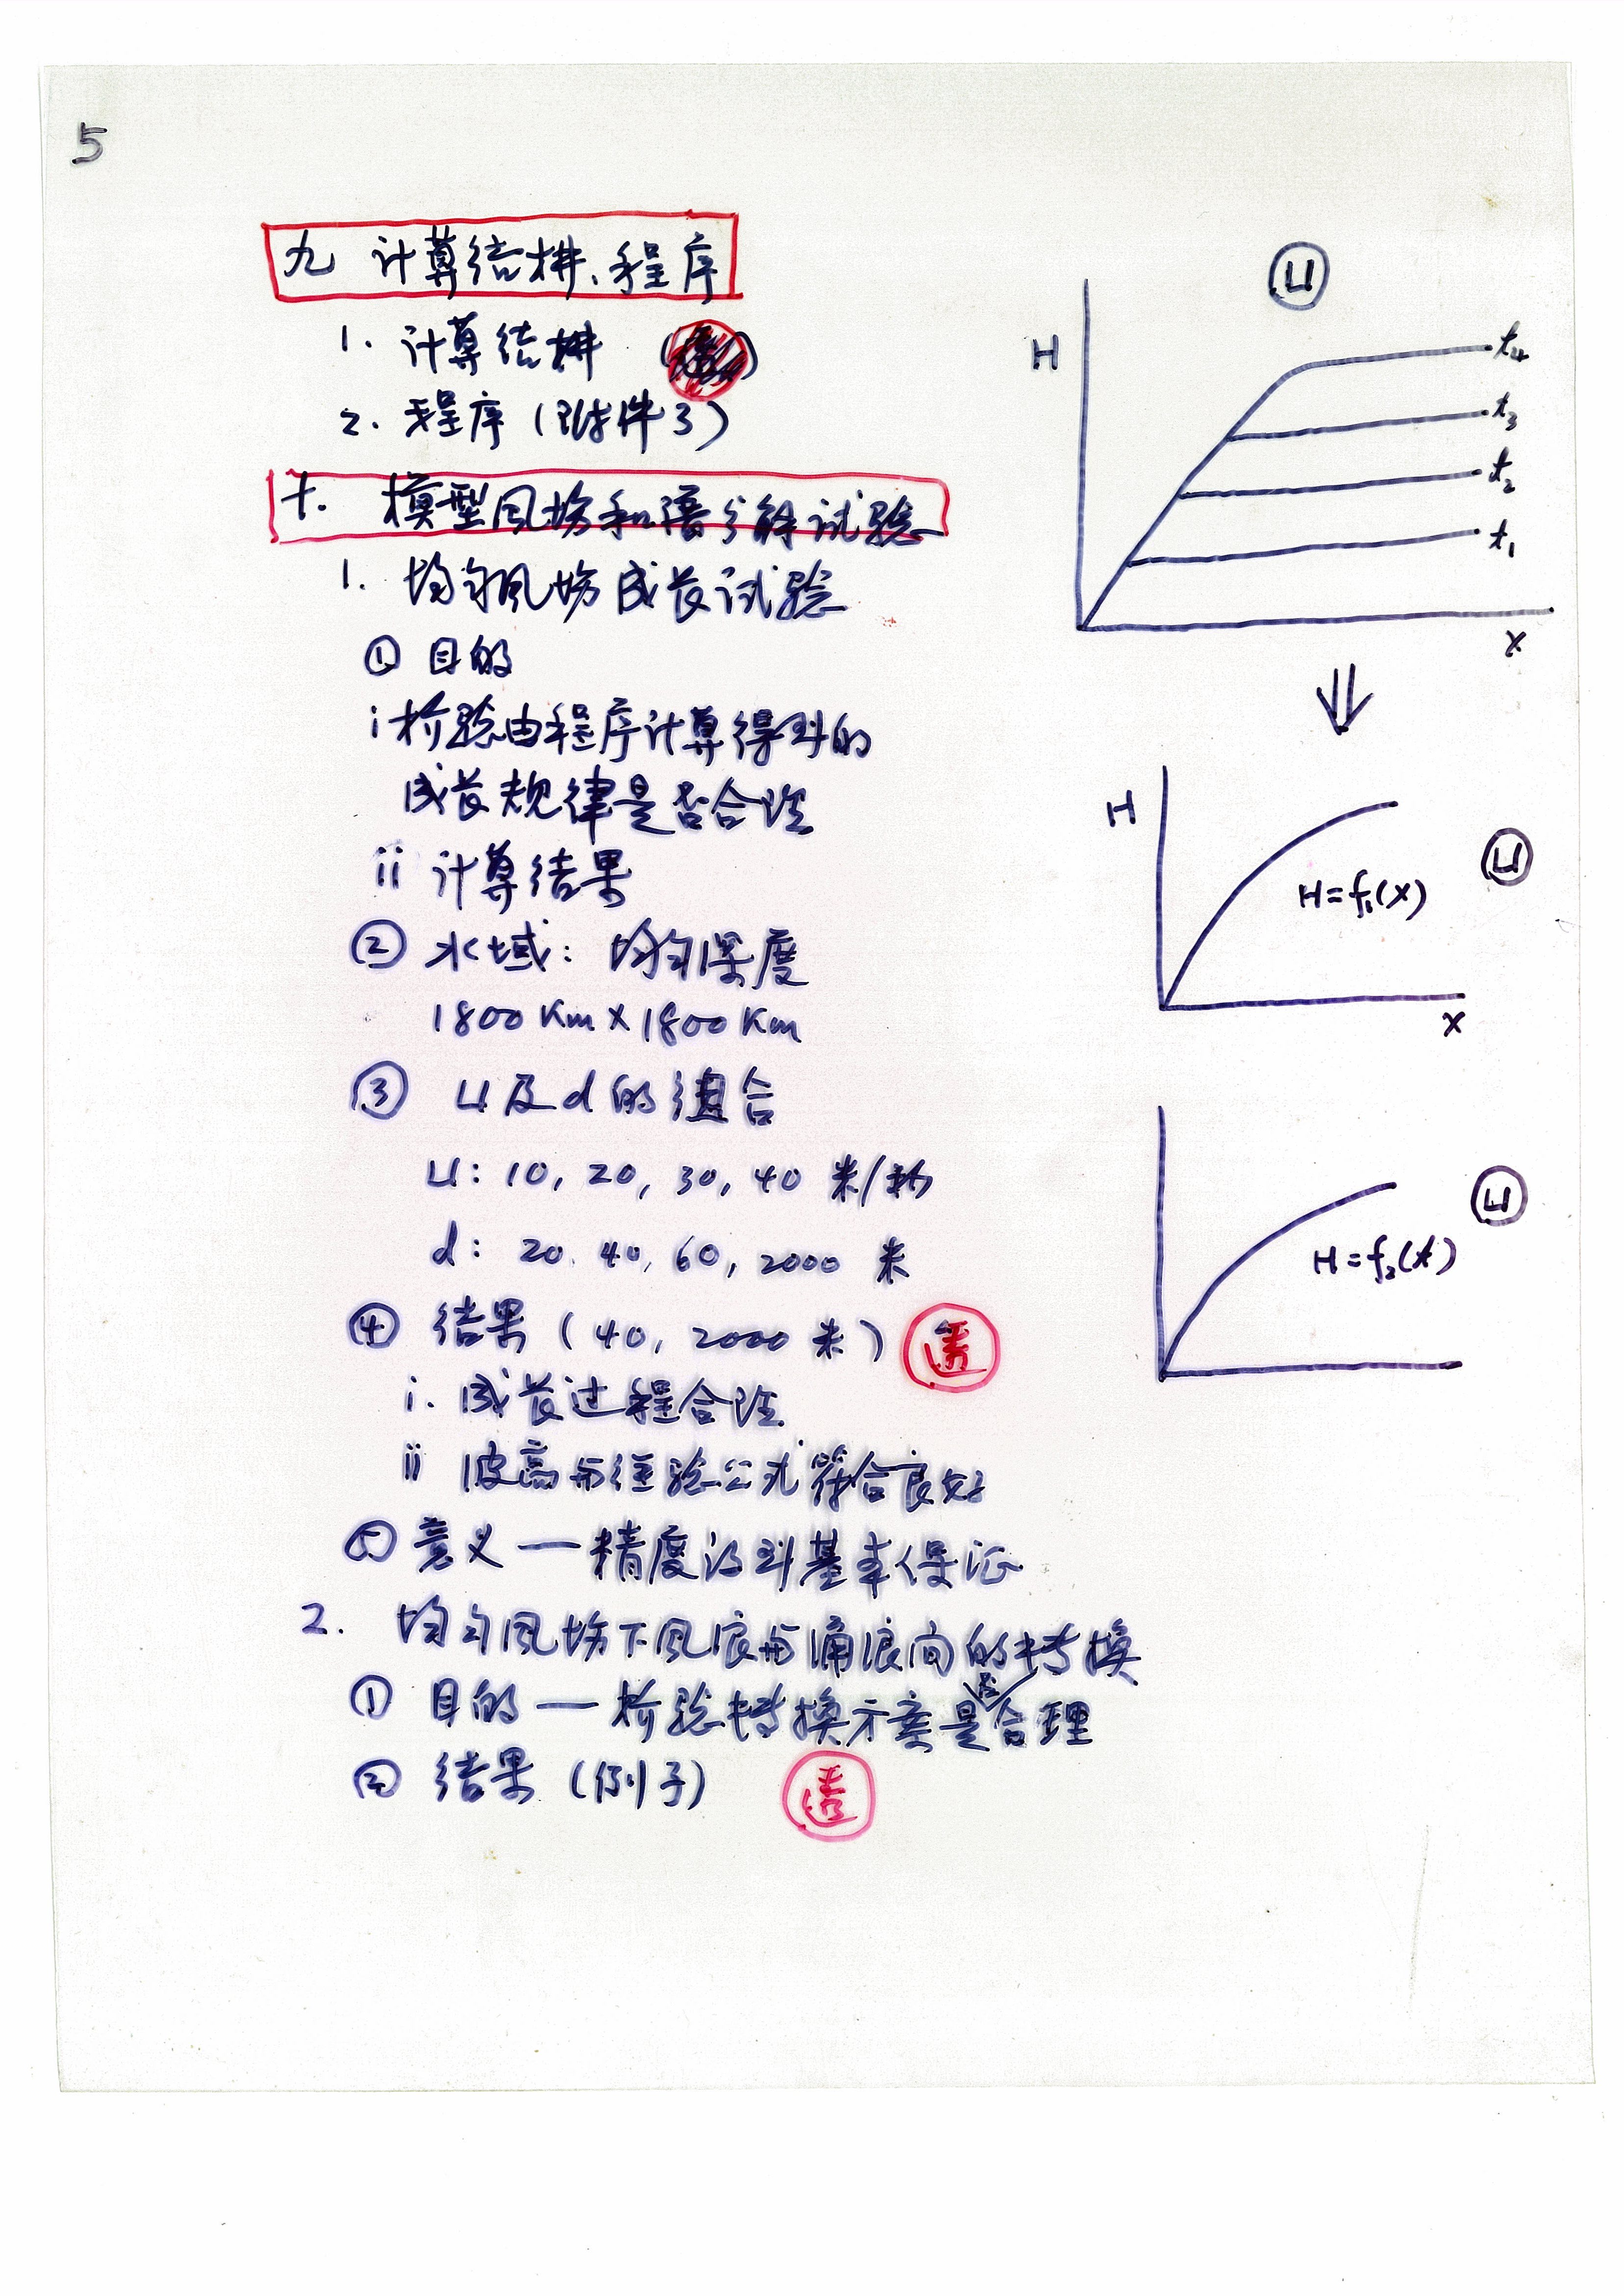 5
九 计算结构、程序
1. 计算结构
2. 程序(附件3)
十. 模型风场和谱分解试验
1. 均匀风场成长试验
① 目的
i 检验由程序计算得到的
成长规律是否合理
ii 计算结果
② 水域: 均匀深度
1800 Km X 1800 Km
③ U及d的组合
U: 10, 20, 30, 40 米/秒
d: 20. 40, 60, 2000 米
④ 结果 ( 40, 2000 米 )
i. 成长过程合理
ii 波高与经验公式符合良好
⑤ 意义 — 精度得到基本保证
2. 均匀风场下风浪与涌浪间的转换
① 目的 — 检验转换方案是否合理
② 结果 (例子)
U
H
t₄
t₃
t₂
t₁
x
H
U
H=f₁(x)
x
U
H=f₂(t)